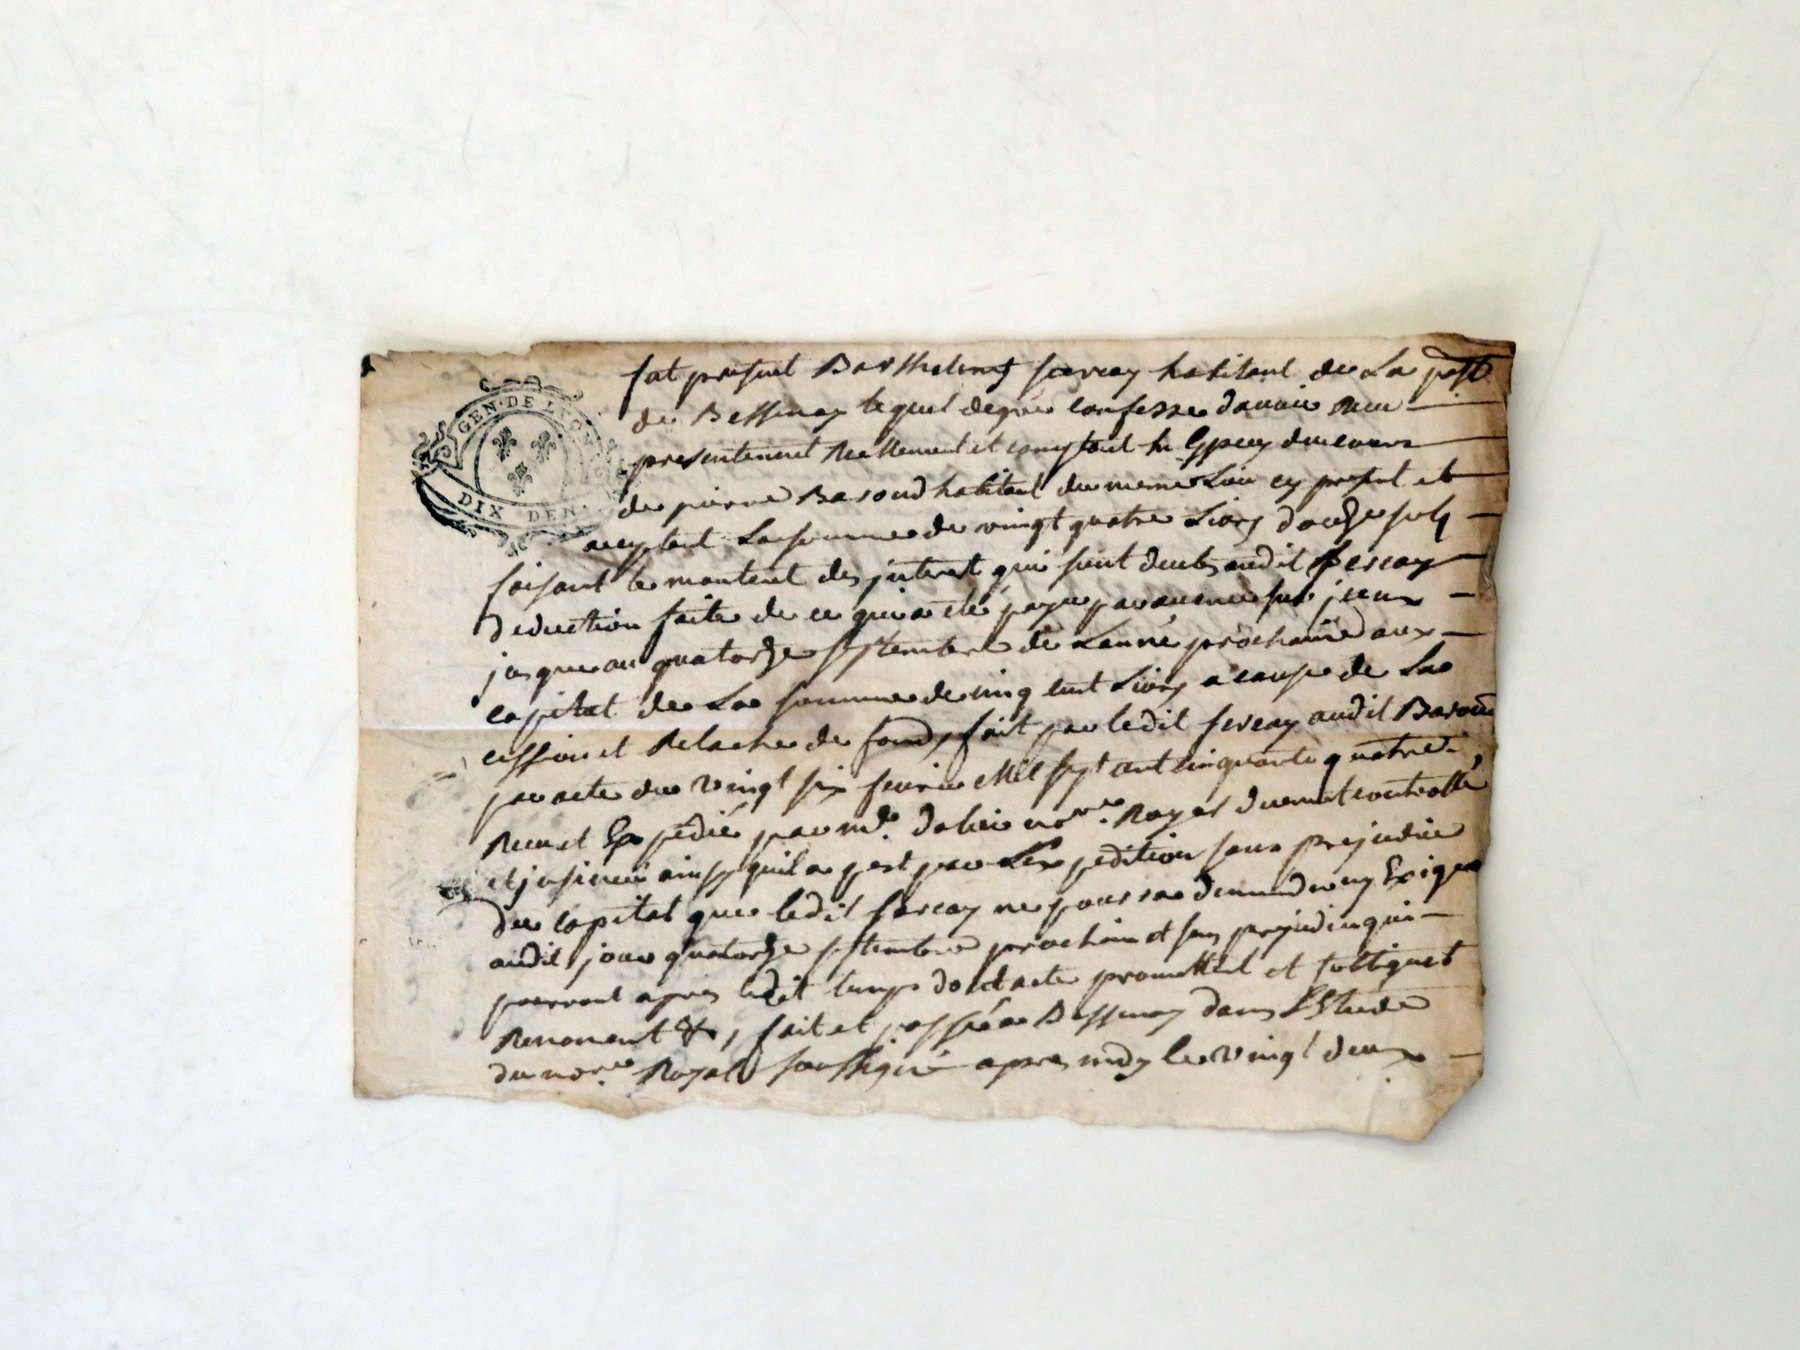 GEN · DE LYON
DIX DEN
fut présent Barthelemy ferray habitant de La
de Bessenay lequel degré confesse davoir Receu
presentement Reellement et comptant en Especes du cours
de pierre Baroud habitant du meme Lieu cy present et
acceptant La somme de vingt quatre Livres douze sols
faisant le montent des jnterest qui sont deubs audit
deduction faite de ce qui a eté payé par avance sur jceux
jusque au quatorze septembre de Lanné prochaine aux
capital de La somme de cinq cent Livres a cause de La
cession et Relache de fonds fait par ledit audit Baroud
par acte du vingt six fevrier Mil sept cent cinquante quatre
Receu et Expédié par me. no.re Royal duement controllé
et jnsinué ainsy quil a par Lexpedition sans prejudice
du capital que ledit ne pourra demander ny Exiger
audit jour quatorze septembre prochain et sans prejudice qui
pourront apres ledit temps dont acte promettant et obligeant
Renoncent &, fait et passé a Bessenay dans LEtude
du no.re Royal soussigné apres mdy le vingt deux